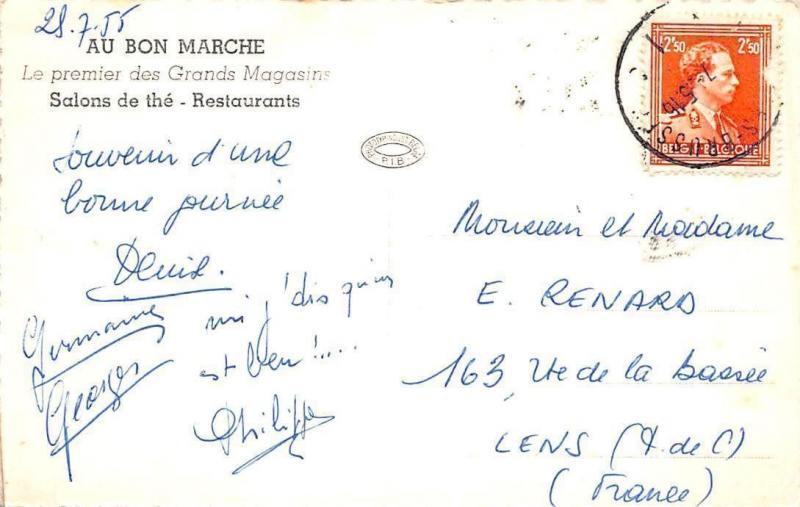 28.7.55
AU BON MARCHE
Le premier des Grands Magasins
Salons de thé - Restaurants
Souvenir d'une
bonne journée
Denise.
Germaine
Georges
mi j'dis qu'in
est ben !....
Philippe
P.I.B.
2F50 2F50
BELGIE - BELGIQUE
Monsieur et Madame
E. RENARD
163, Rte de la Bassée
LENS (P. de C)
(France)